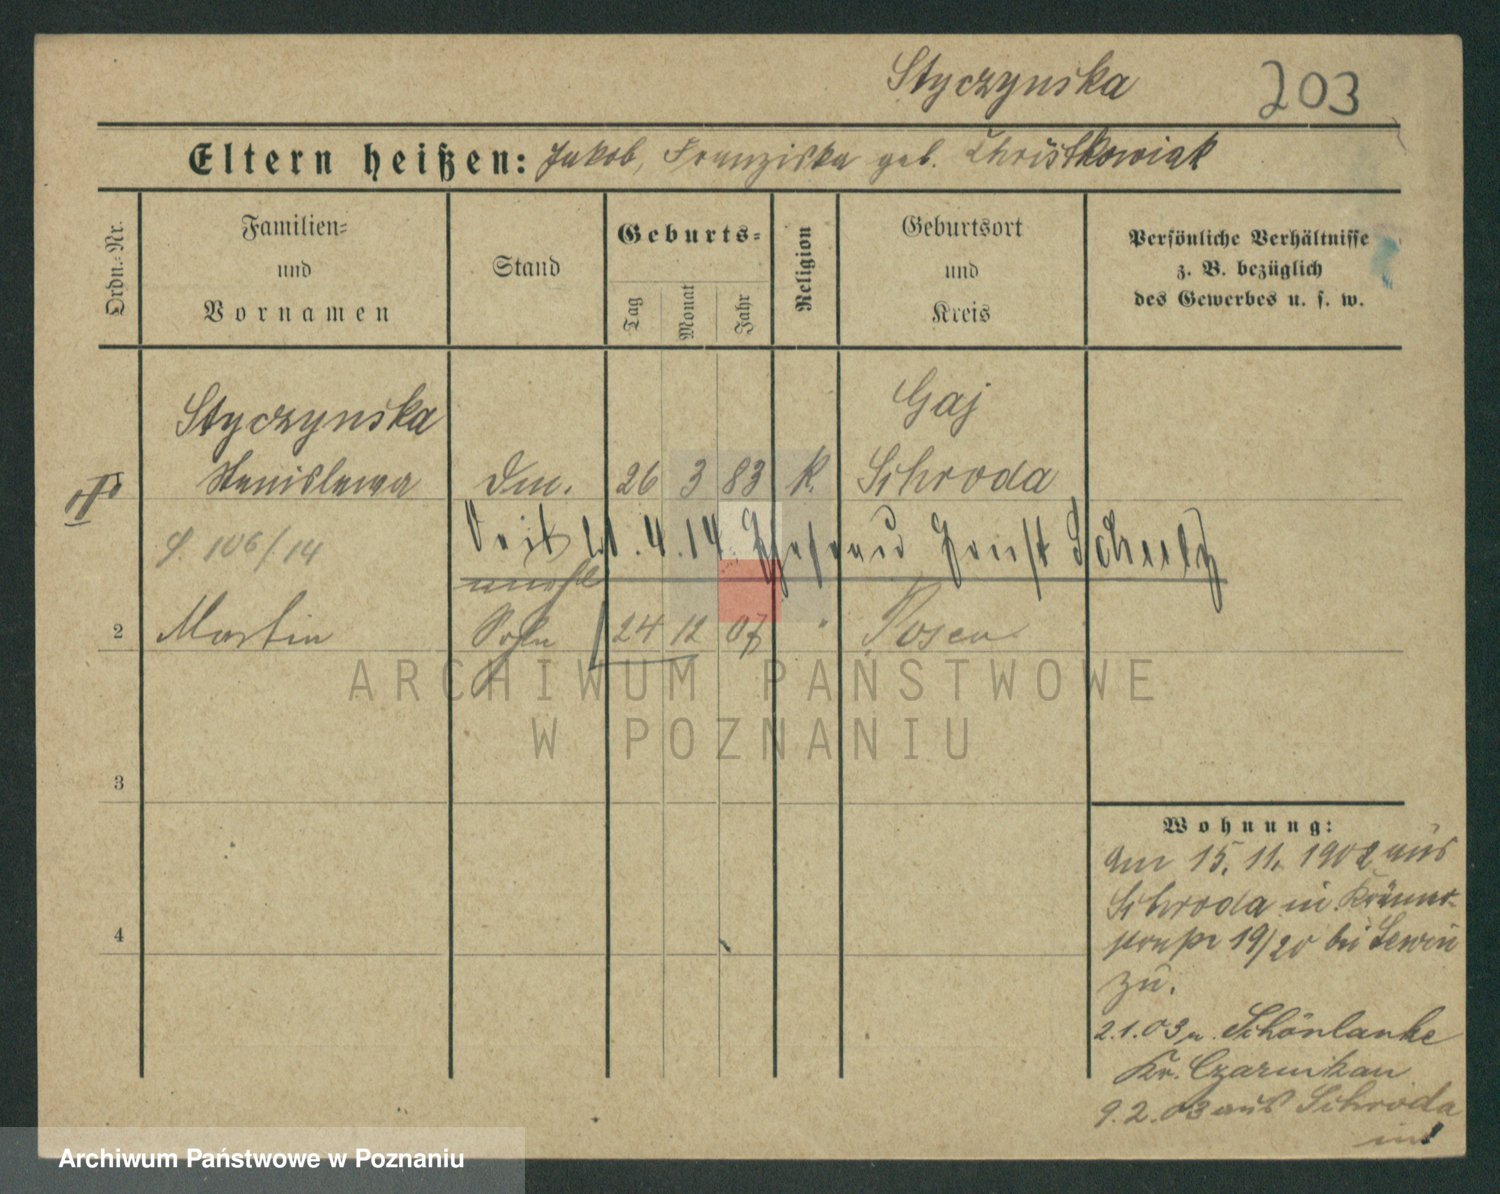 Styczynska 203
Eltern heißen: Jakob, Franziska geb. Christkowiak
Ordn.-Nr.
Familien-
und
Vornamen
Stand
Geburts-
Tag
Monat
Jahr
Religion
Geburtsort
und
Kreis
Persönliche Verhältnisse
z. B. bezüglich
des Gewerbes u. s. w.
Styczynska
Gaj
Stanislawa
26 3 83 K. Schroda
Seit 1.4.14. Ehefrau Ernst Schulz
106/14
unehl
2 Martin Sohn 24 12 07 " Posen
3
4
Wohnung:
Am 15. 11. 1902 aus
Schroda in Krämer-
straße 19/20 bei Lewin
zu.
2.1.03 n. Schönlanke
Kr. Czarnikau
9.2.03 aus Schroda
in
ARCHIWUM PAŃSTWOWE
W POZNANIU
Archiwum Państwowe w Poznaniu